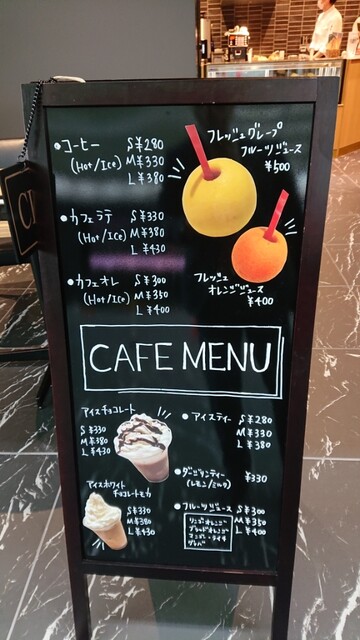 コーヒー S ¥280
(Hot/Ice) M ¥330
L ¥380
カフェラテ S ¥330
(Hot/Ice) M ¥380
L ¥430
カフェオレ S ¥300
(Hot/Ice) M ¥350
L ¥400
フレッシュグレープ
フルーツジュース
¥500
フレッシュ
オレンジジュース
¥400
CAFE MENU
アイスチョコレート
S ¥330
M ¥380
L ¥430
アイスホワイト
チョコレートモカ
S ¥330
M ¥380
L ¥430
アイスティー S ¥280
M ¥330
L ¥380
ダージリンティー ¥330
(レモン/ミルク)
フルーツジュース S ¥300
M ¥350
L ¥400
リンゴ・オレンジ
ブラッドオレンジ
マンゴー・ライチ
グァバ